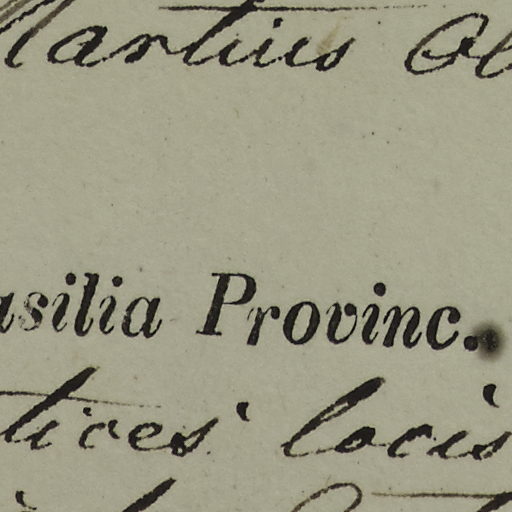 Martius Ob
asilia Provinc.
tices locis